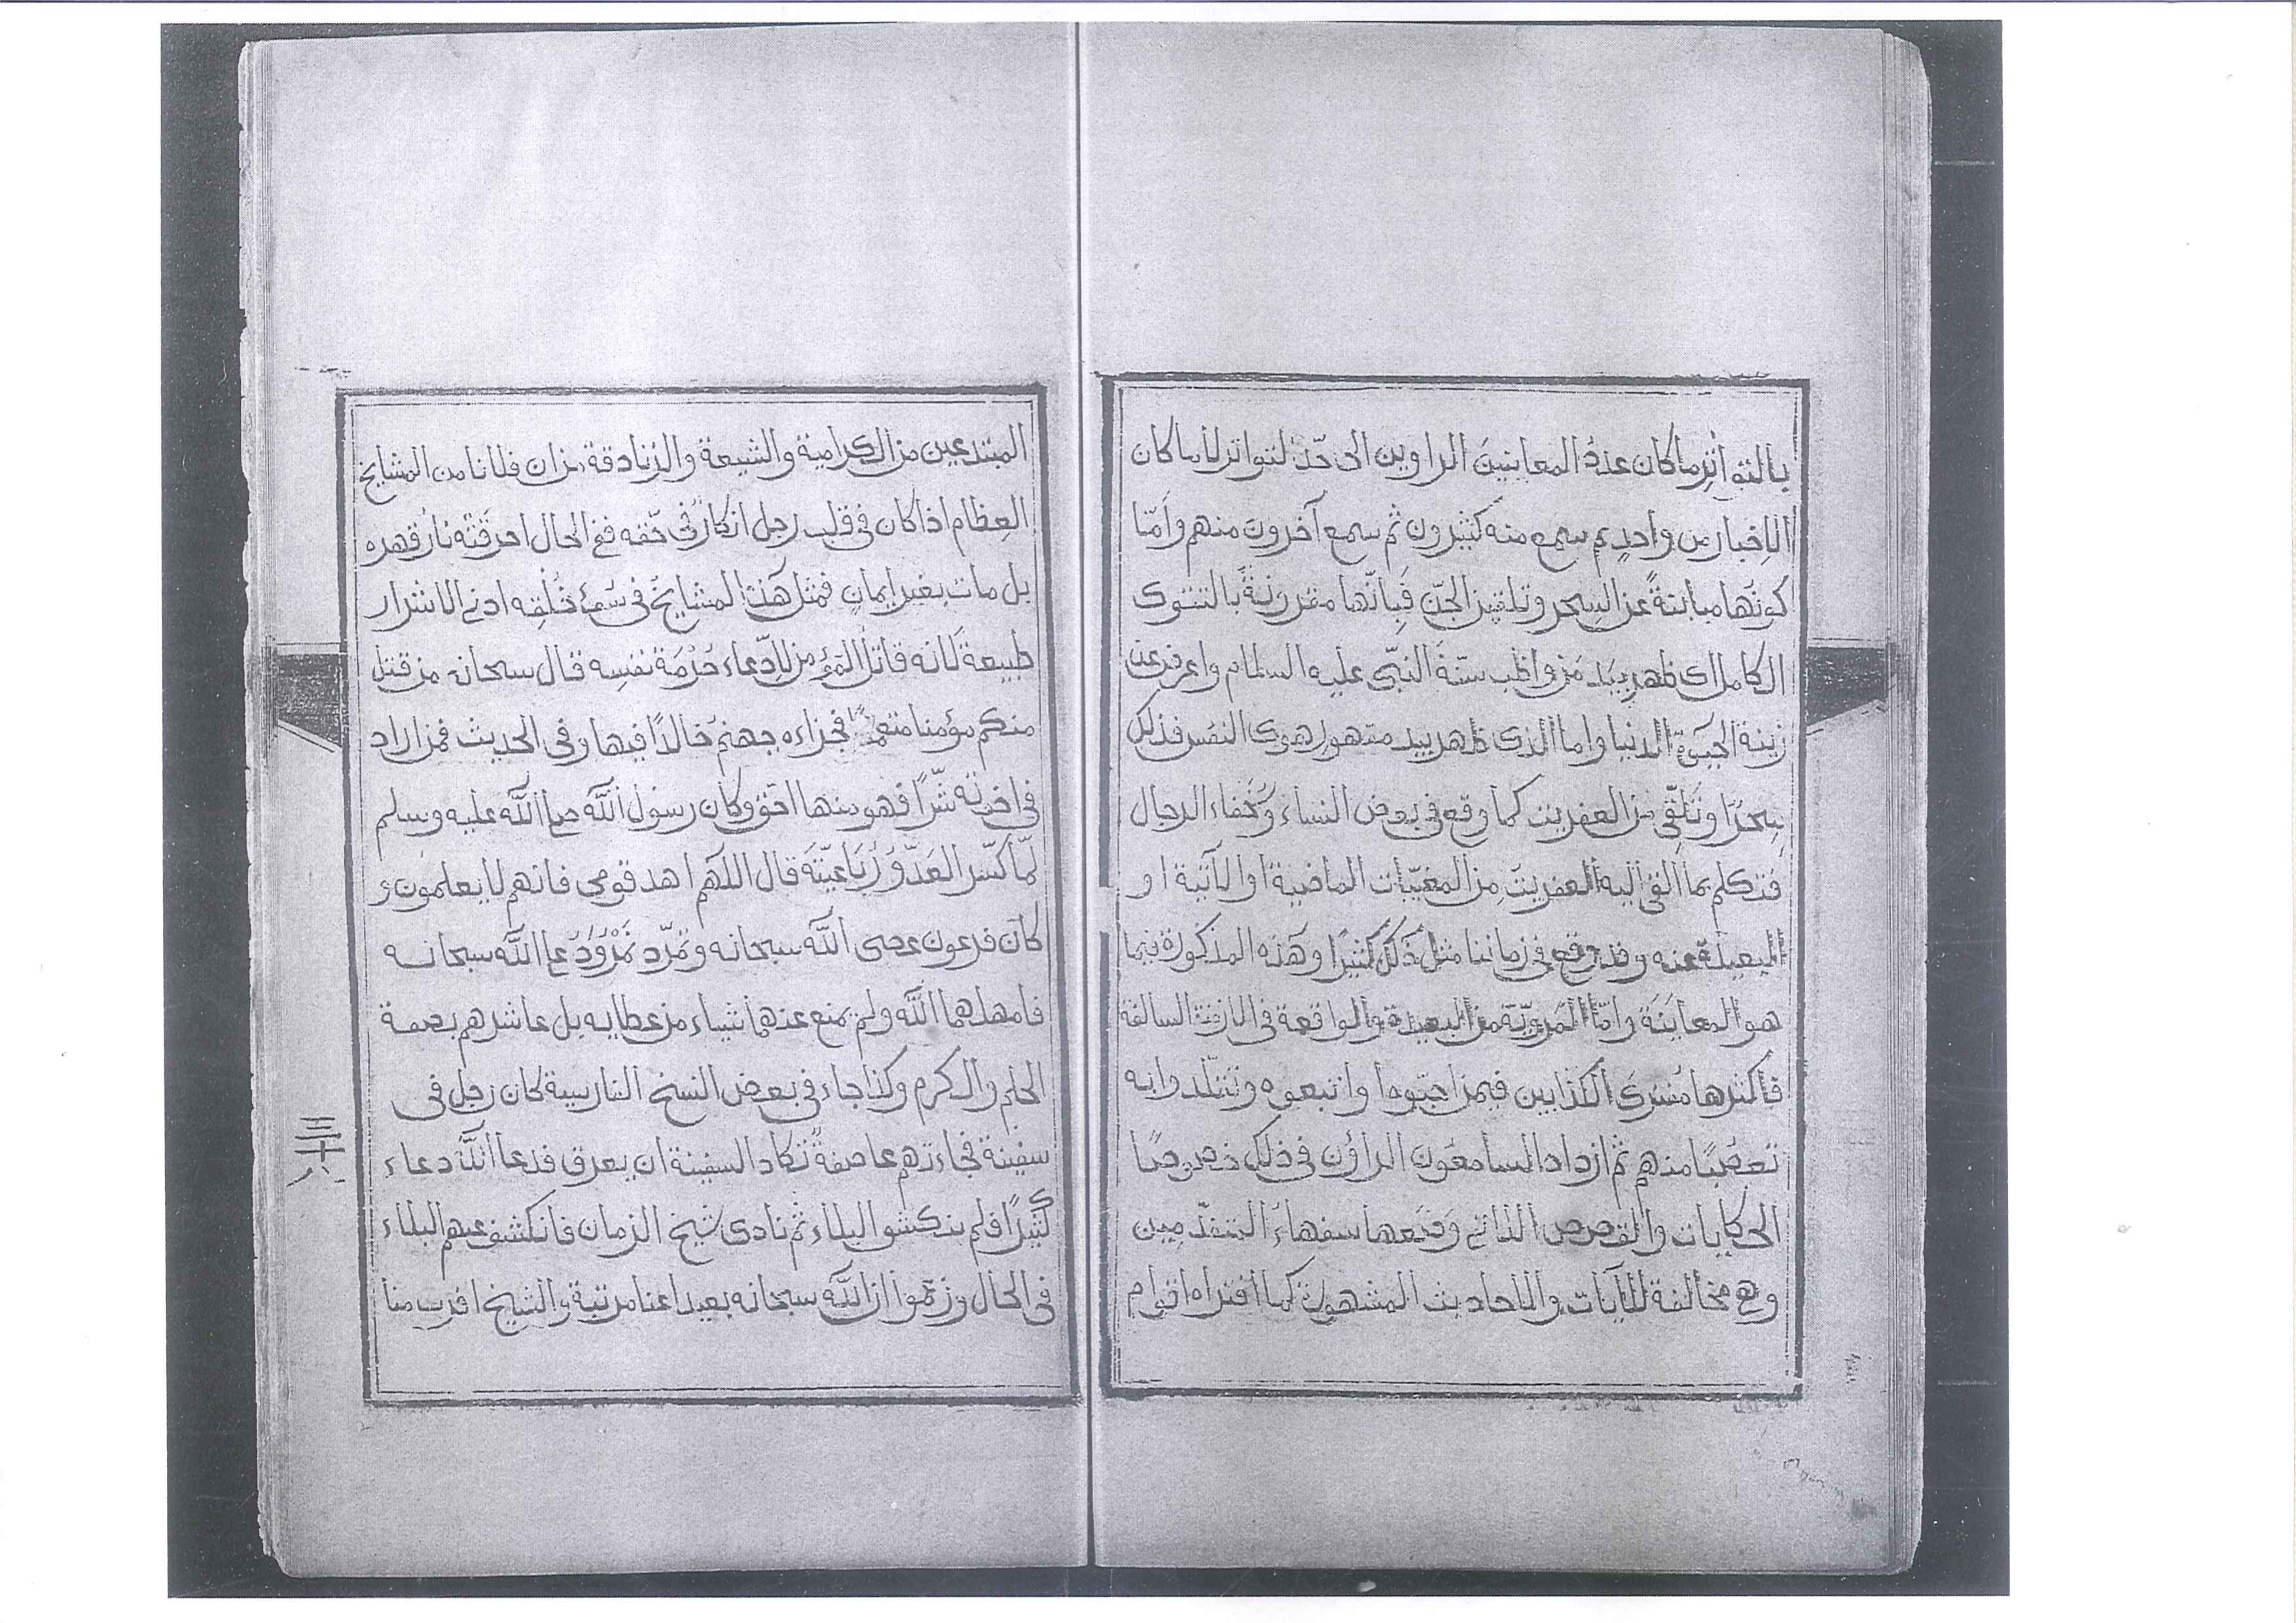 بالتواتر ما كان عدد المعاينين الراوين الى حد التواتر لا ما كان
الاخبار من واحد ثم سمع منه كثيرون ثم سمع آخرون منهم وأمّا
كونها مباينةً عن السحر وتلقين الجن فبانّها مقرونة بالتقوى
الكامل اى ظهر بيد من واظب سنّة النبىّ عليه السلام واعرض عن
زينة الحيوة الدنيا واما الذى ظهر بيد متهور لهوى النفس فذلك
سحرًا وتلقّى من العفريت كما وقع فى بعض النساء وخفاء الرجال
فتكلم بما القى اليه العفريت من المغيّبات الماضية او الآتية او
البعيدة عنه وقد وقع فى زماننا مثل ذلك كثيرًا وهذه المذكورة فيما
هو المعاينة وامّا المرويّة من البعيدة والواقعة فى الازمنة السالفة
فاكثرها مفترى الكذابين فيمن احبّوه واتبعوه وتقلّدوا به
تعصّبًا منهم ثم ازداد السامعون الراؤن فى ذلك خصوصًا
الحكايات والقصص الذاتى وضعها سفهاء المتقدّمين
وهى مخالفة للآيات والاحاديث المشهورة كما افتراه اقوام
المبتدعين من الكرامية والشيعة والزنادقة من ان فلانا من المشايخ
العظام اذا كان فى قلب رجل انكارٌ فى حقّه ففى الحال احرقته نار قهره
بل مات بغير ايمان فمثل هذا المشايخ فى سىء خُلقه ادنى الاشرار
طبيعة لانه قاتل المؤمن لادّعاء حُرْمة نفسه قال سبحانه من قتل
منكم مؤمنا متعمدًا فجزاءه جهنم خالدًا فيها وفى الحديث فمن اراد
فى اخوته شرًّا فهو منها احق وكان رسول الله صلى الله عليه وسلم
لمّا كسّر العدوّ رباعيّته قال اللهم اهد قومى فانهم لا يعلمون و
كان فرعون عصى الله سبحانه وتمرّد نمرود على الله سبحانه
فامهلهما الله ولم يمنع عنهما شياء من عطايه بل عاشرهم بصفة
الحلم والكرم وكذا جاء فى بعض النسخ الفارسية كان رجل فى
سفينة فجاءتهم عاصفة تكاد السفينة ان يغرق فدعا الله دعاء
كثيرًا فلم ينكشو البلاء ثم نادى شيخ الزمان فانكشف عنهم البلاء
فى الحال وزعموا ان الله سبحانه بعيدا عنا مرتبة والشيخ اقرب منا
三十八